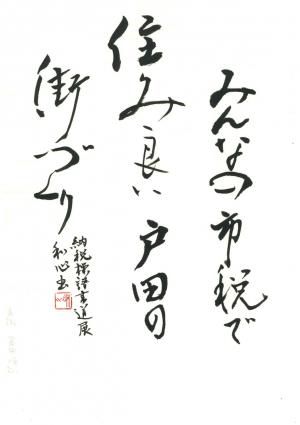 みんなの市税で
住み良い戸田の
街づくり
納税標語書道展
和心書